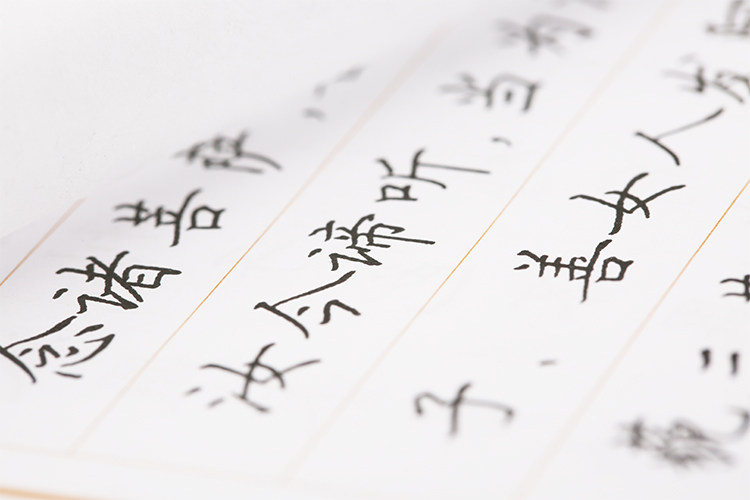 念诸菩萨
汝今谛听，当为
子、善女人，发